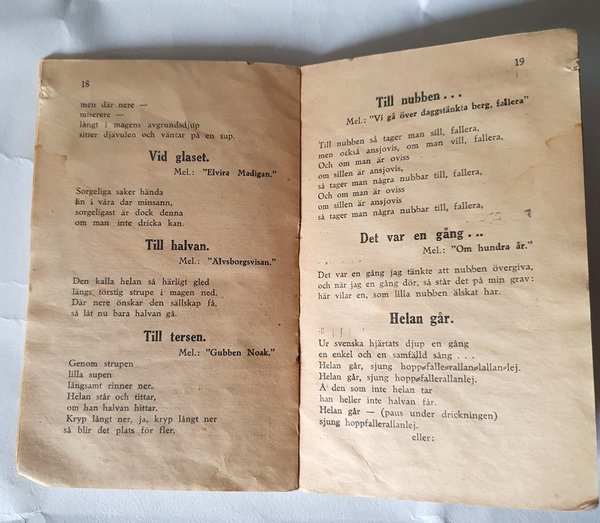 18
men där nere —
miserere —
långt i magens avgrundsdjup
sitter djävulen och väntar på en sup.
Vid glaset.
Mel.: "Elvira Madigan."
Sorgeliga saker hända
än i våra dar minsann,
sorgeligast är dock denna
om man inte dricka kan.
Till halvan.
Mel.: "Älvsborgsvisan."
Den kalla helan så härligt gled
längs törstig strupe i magen ned.
Där nere önskar den sällskap få,
så låt nu bara halvan gå.
Till tersen.
Mel.: "Gubben Noak."
Genom strupen
lilla supen
långsamt rinner ner.
Helan står och tittar,
om han halvan hittar.
Kryp långt ner, ja, kryp långt ner
så blir det plats för fler.
19
Till nubben . . .
Mel.: "Vi gå över daggstänkta berg, fallera"
Till nubben så tager man sill, fallera,
men också ansjovis, om man vill, fallera,
Och om man är oviss
om sillen är ansjovis,
så tager man några nubbar till, fallera,
Och om man är oviss
om sillen är ansjovis
så tager man några nubbar till, fallera,
Det var en gång . . .
Mel.: "Om hundra år."
Det var en gång jag tänkte att nubben övergiva,
och när jag en gång dör, så står det på min grav:
här vilar en, som lilla nubben älskat har.
Helan går.
Ur svenska hjärtats djup en gång
en enkel och en samfälld sång . . .
Helan går, sjung hopp-falle-rallan-lallan-lej.
Helan går, sjung hoppfallerallanlej.
Å den som inte helan tar
han heller inte halvan får.
Helan går — (paus under drickningen)
sjung hoppfallerallanlej.
eller: